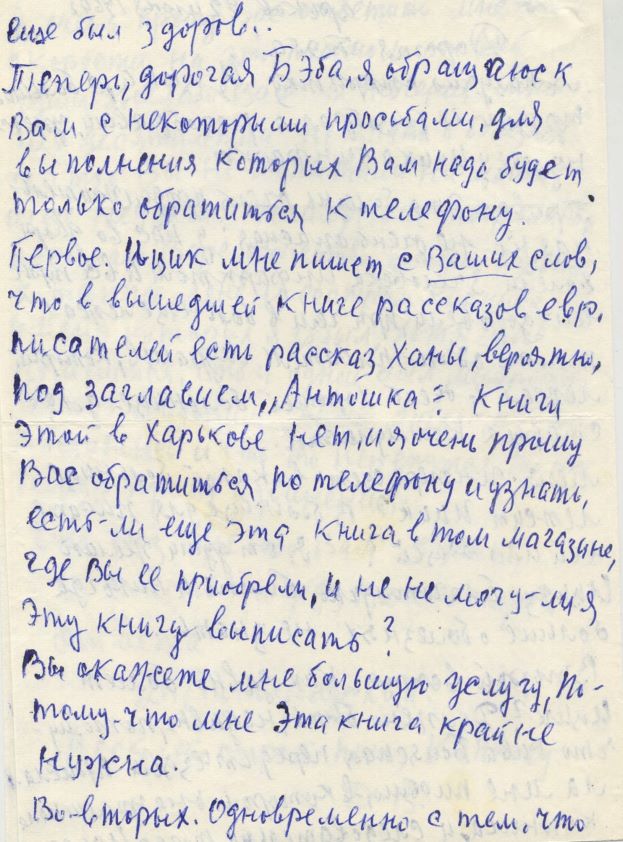 еще был здоров..
Теперь, дорогая Бэба, я обращаюсь к
Вам с некоторыми просьбами, для
выполнения которых Вам надо будет
только обратиться к телефону.
Первое. Ицик мне пишет с Ваших слов,
что в вышедшей книге рассказов евр.
писателей есть рассказ Ханы, вероятно,
под заглавием „Антошка". Книги
этой в Харькове нет, и я очень прошу
Вас обратиться по телефону и узнать,
есть-ли еще эта книга в том магазине,
где Вы ее приобрели, и не не могу-ли я
Эту книгу выписать?
Вы окажете мне большую услугу, по-
тому-что мне эта книга крайне
нужна.
Во-вторых. Одновременно с тем, что